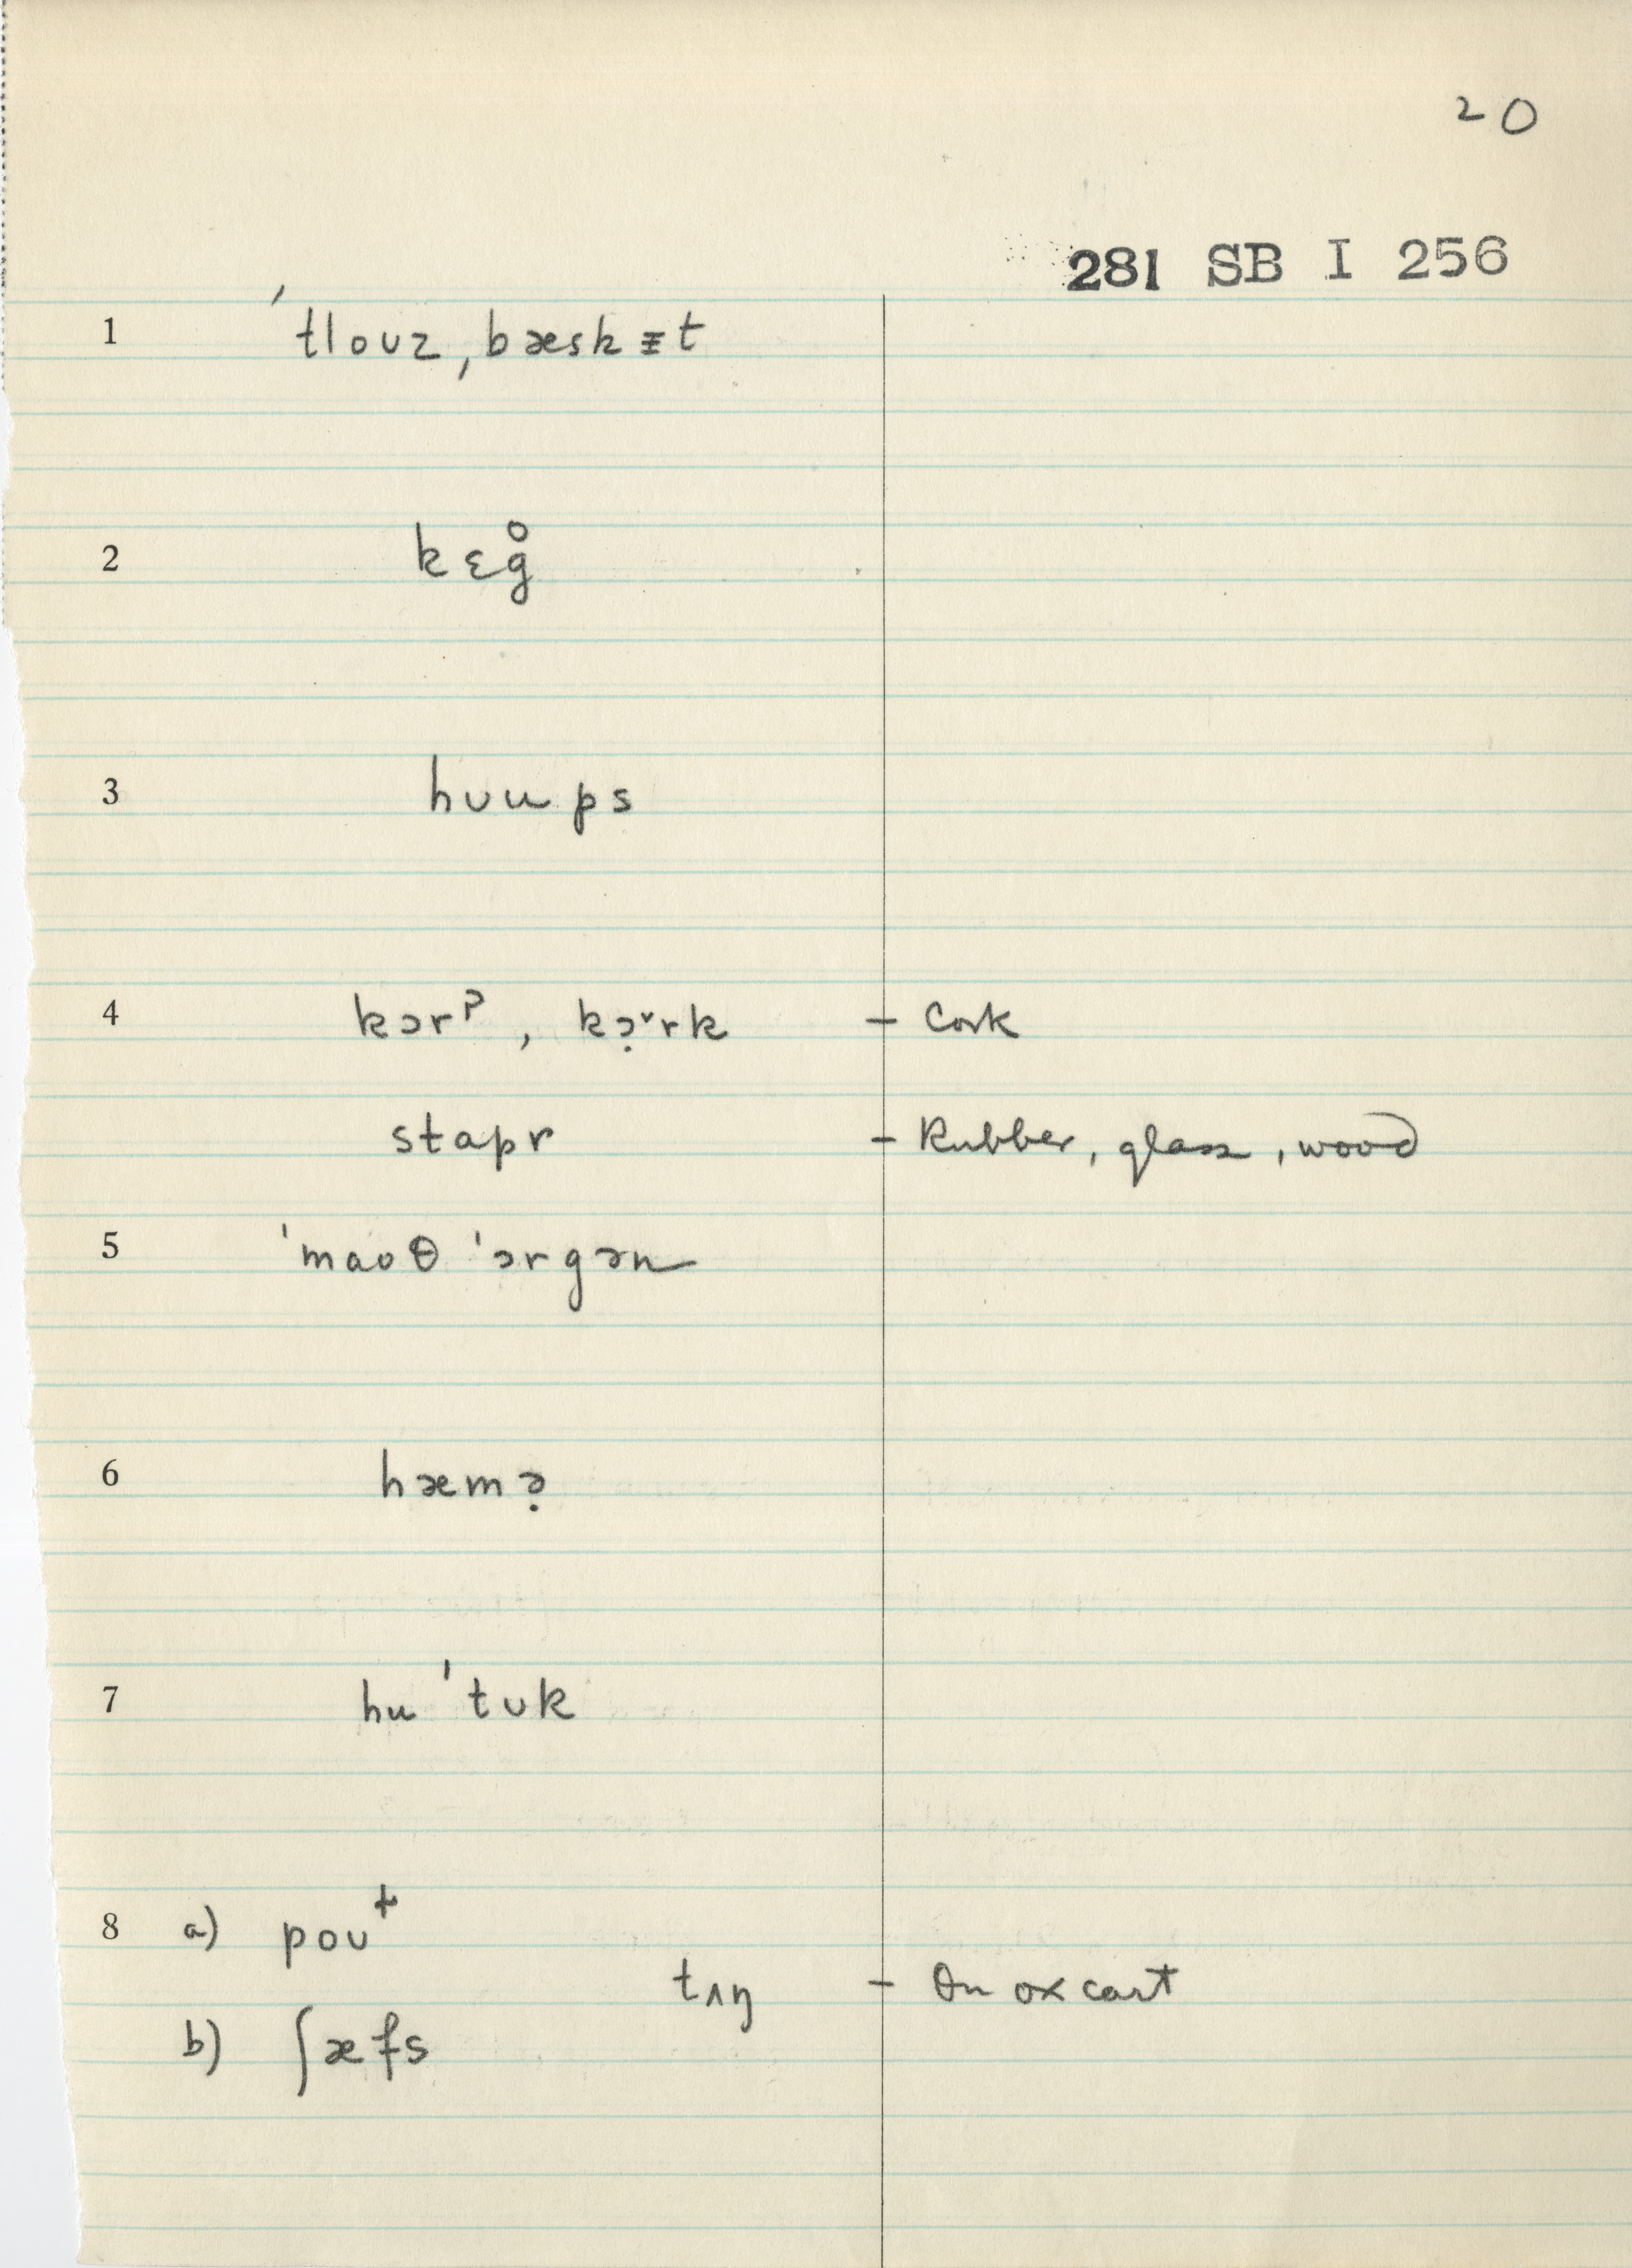 20
281 SB I 256
1 ˈtloʊz ˌbæskᵻt
2 kɛg̊
3 hʊups
4 kɔrᵖ, kɔ̣ˇrk – Cork
stapr – Rubber, glass, wood
5 ˈmaʊθ ˈɔrgən
6 hæmə̣
7 huˈtʊk
8 a) poʊᵗ
tʌŋ – On ox cart
b) ʃæfs